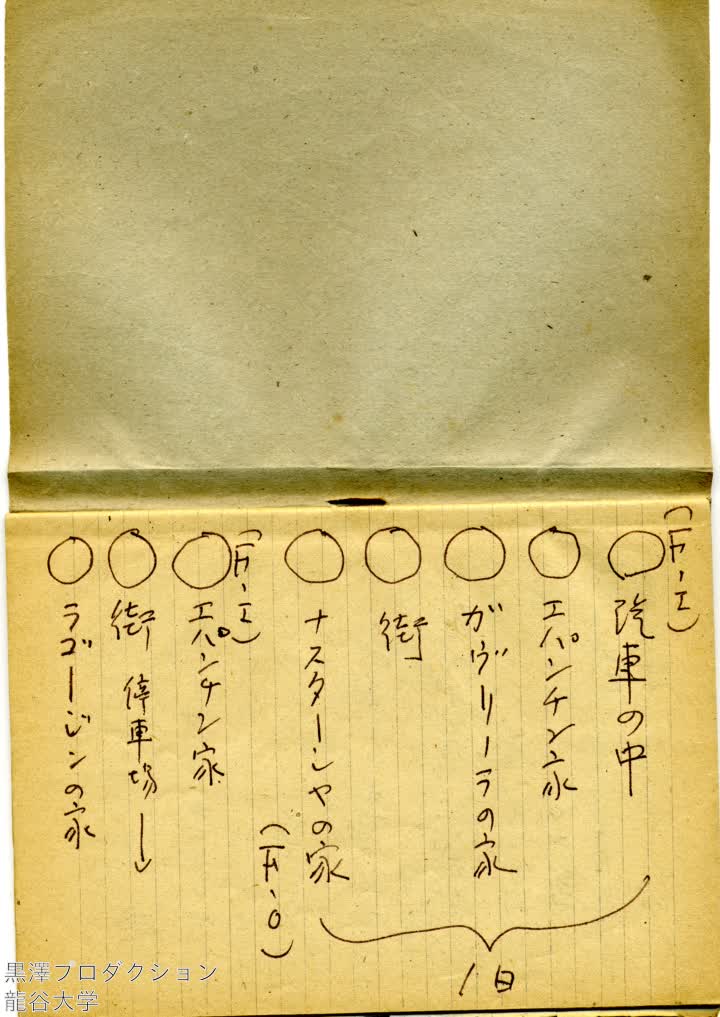 (F・I)
○ 汽車の中
○ エパンチン家
○ ガヴリーラの家
○ 街
○ ナスターシャの家
(F・O)
1日
(F・I)
○ エパンチン家
○ 街 停車場→
○ ラゴージンの家
黒澤プロダクション
龍谷大学